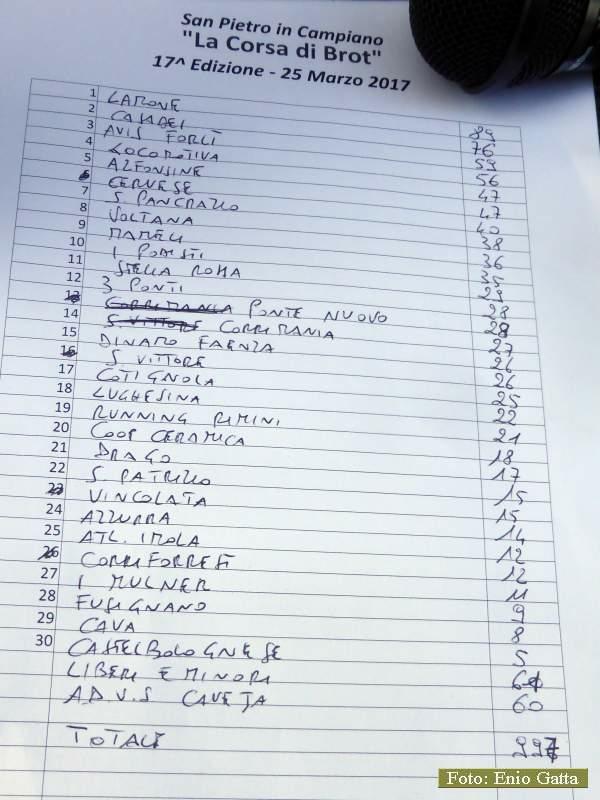 San Pietro in Campiano
"La Corsa di Brot"
17^ Edizione - 25 Marzo 2017
1 LAMONE 89
2 CASADEI 76
3 AVIS FORLÌ 59
4 LOCOMOTIVA 56
5 ALFONSINE 47
6 CERVESE 47
7 S PANCRAZIO 40
8 VOLTANA 38
9 MAMELI 36
10 I PODISTI 35
11 STELLA ROMA 29
12 3 PONTI 28
13 CORRIMANIA PONTE NUOVO 28
14 S. VITTORE CORRIMANIA 27
15 DINAMO FAENZA 26
16 S. VITTORE 26
17 COTIGNOLA 25
18 LUGHESINA 22
19 RUNNING RIMINI 21
20 COOP CERAMICA 18
21 DRAGO 17
22 S. PATRIZIO 15
23 VINCOLATA 15
24 AZZURRA 14
25 ATL. IMOLA 12
26 CORRIFORREST 12
27 I MULNER 11
28 FUSIGNANO 9
29 CAVA 8
30 CASTELBOLOGNESE 5
LIBERI E MINORI
A.D.V.S CAVEJA 60
TOTALI
Foto: Enio Gatta